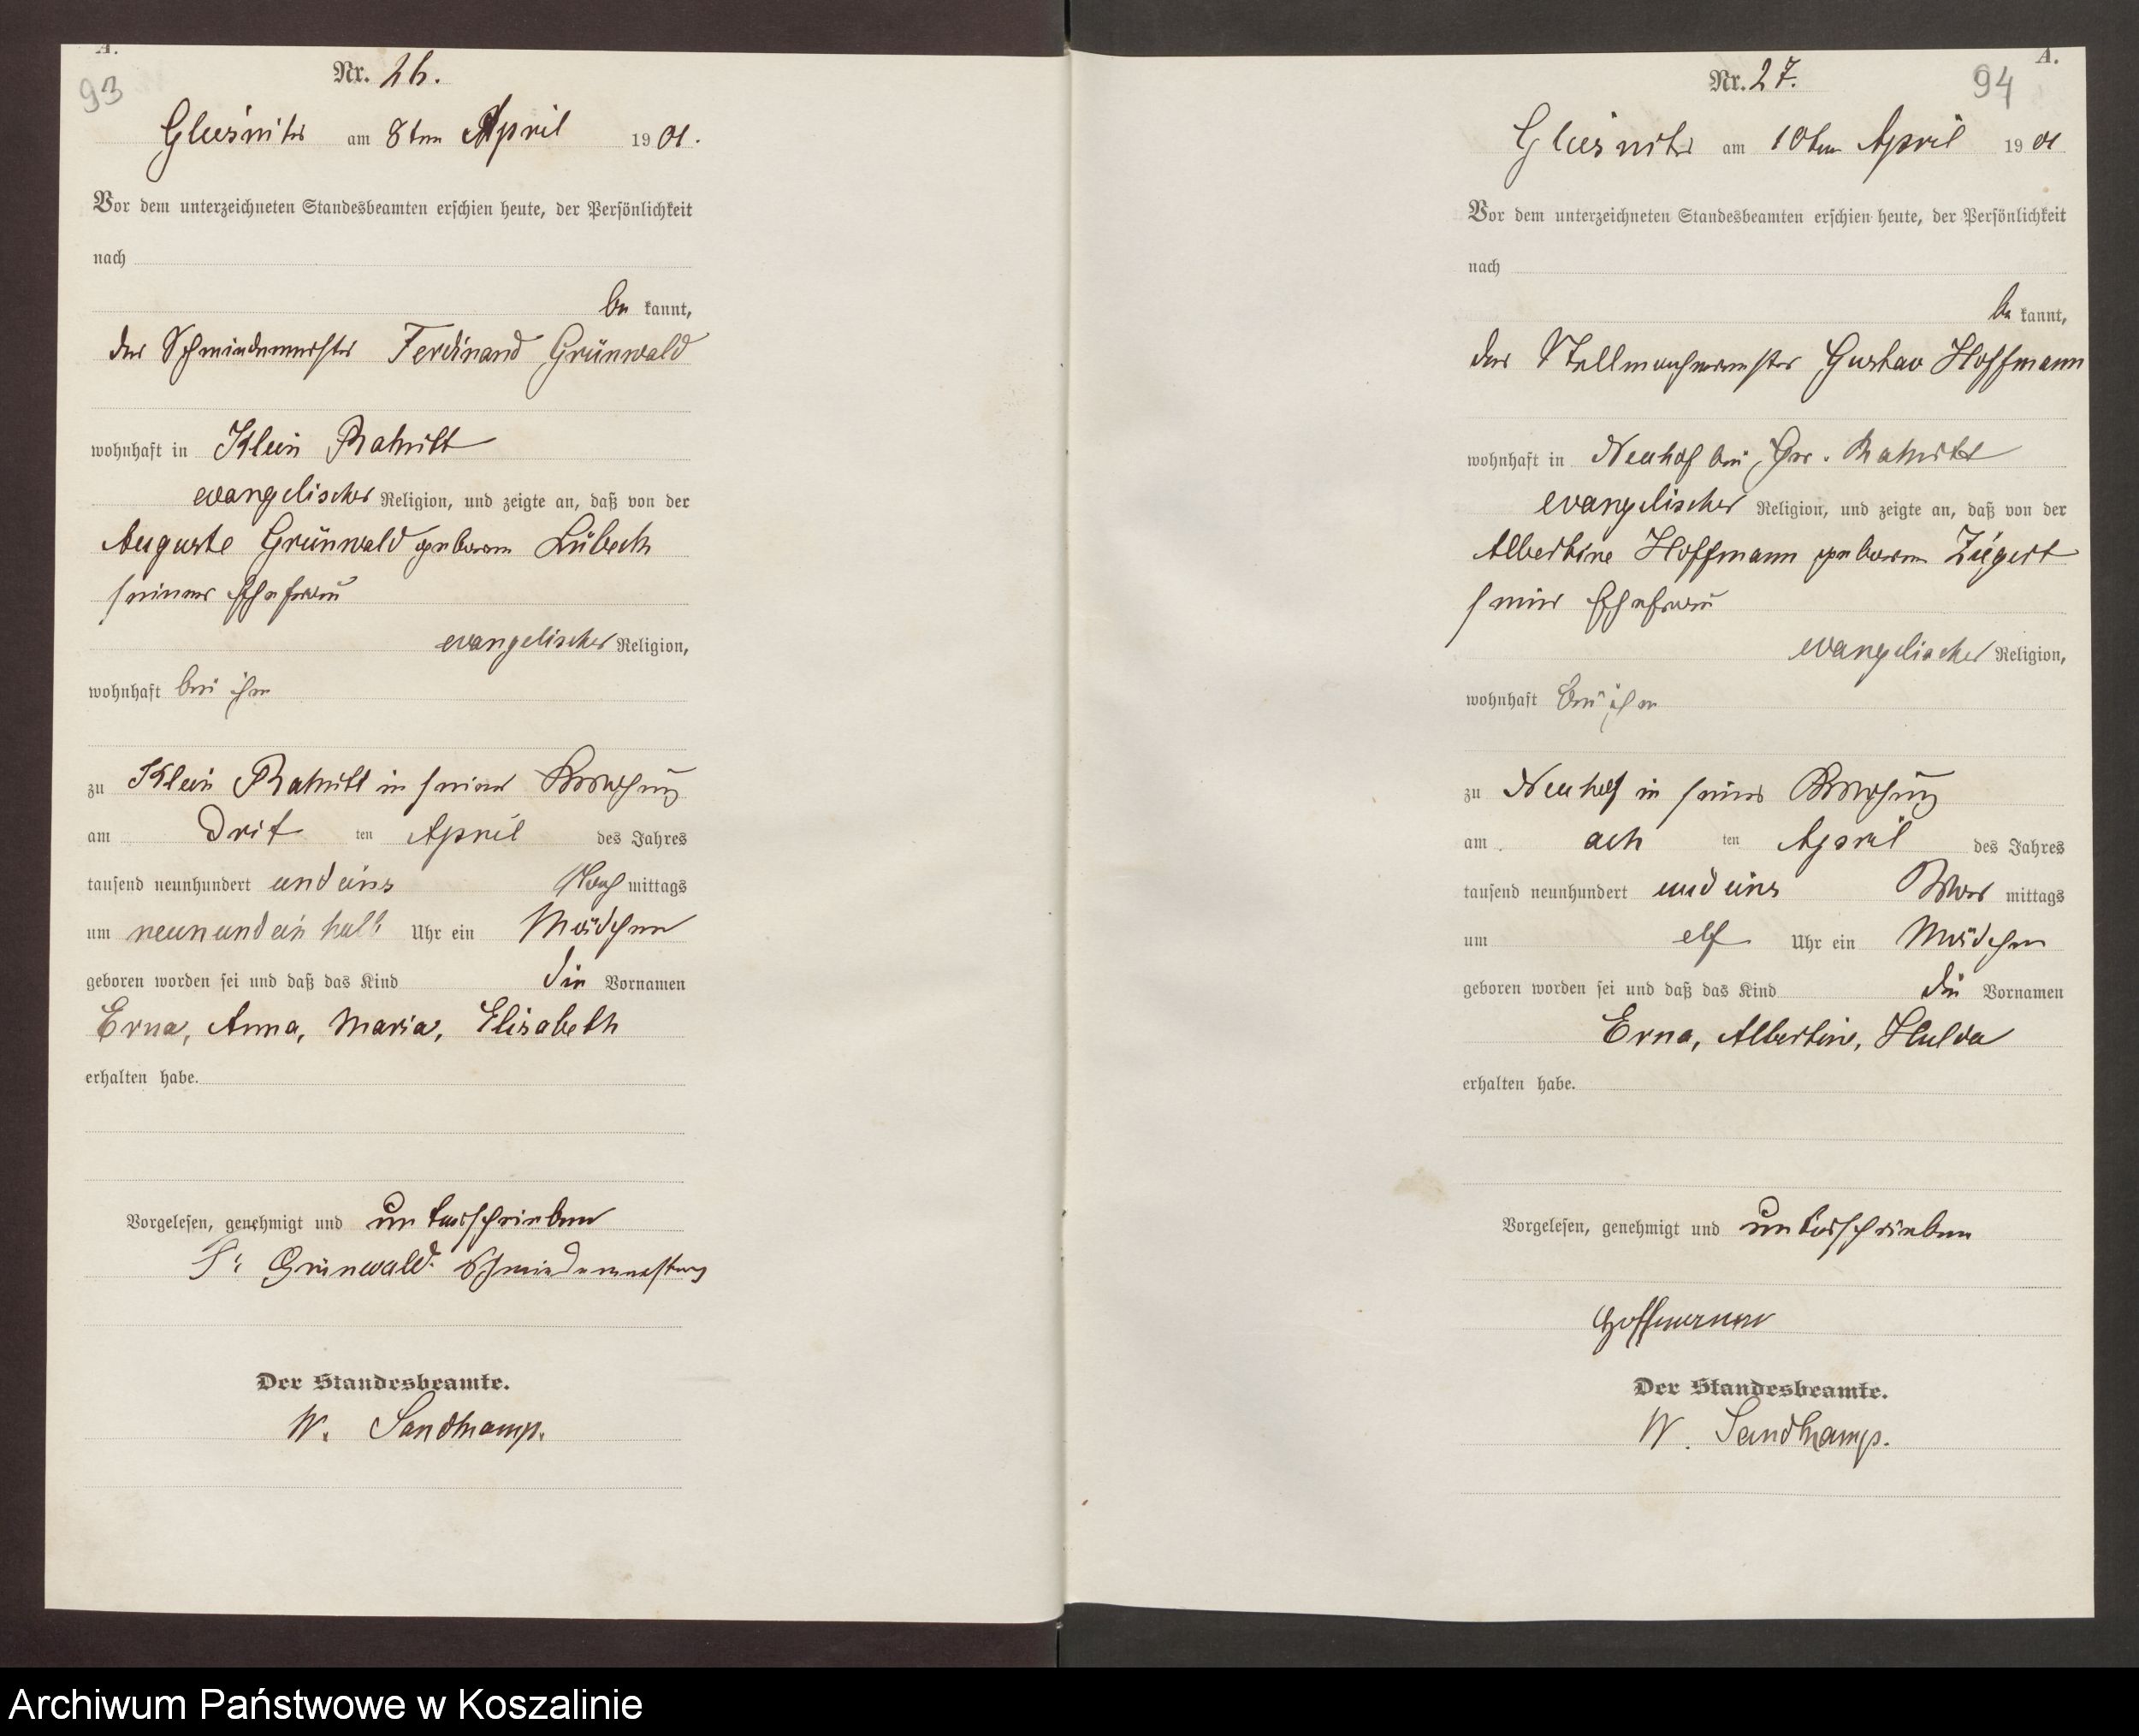 A.
93
Nr. 26.
Glusnitz am 8ten April 1901.
Vor dem unterzeichneten Standesbeamten erschien heute, der Persönlichkeit
nach
be kannt,
der Schmiedemeister Ferdinand Grünwald
wohnhaft in Klein Rakitt
evangelischer Religion, und zeigte an, daß von der
Auguste Grünwald geboren Lübeck
seiner Ehefrau
evangelischer Religion,
wohnhaft bei ihm
zu Klein Rakitt in seiner
am drit ten April des Jahres
tausend neunhundert und eins Nach mittags
um neun und ein halb Uhr ein Mädchen
geboren worden sei und daß das Kind die Vornamen
Erna, Anna, Maria, Elisabeth
erhalten habe.
Vorgelesen, genehmigt und unterschrieben
F. Grünwald. Schmiedemeister
Der Standesbeamte.
W. Sandkamp.
A.
94
Nr. 27.
Glusnitz am 10ten April 1901
Vor dem unterzeichneten Standesbeamten erschien heute, der Persönlichkeit
nach
be kannt,
der Stellmachermeister Gustav Hoffmann
wohnhaft in Neuhof bei Gr. Rakitt
evangelischer Religion, und zeigte an, daß von der
Albertine Hoffmann geboren Ziegert
seiner Ehefrau
evangelischer Religion,
wohnhaft bei ihm
zu Neuhof in seiner
am ach ten April des Jahres
tausend neunhundert und eins Vor mittags
um elf Uhr ein Mädchen
geboren worden sei und daß das Kind die Vornamen
Erna, Albertine, Hulda
erhalten habe.
Vorgelesen, genehmigt und unterschrieben
Hoffmann
Der Standesbeamte.
W. Sandkamp.
Archiwum Państwowe w Koszalinie